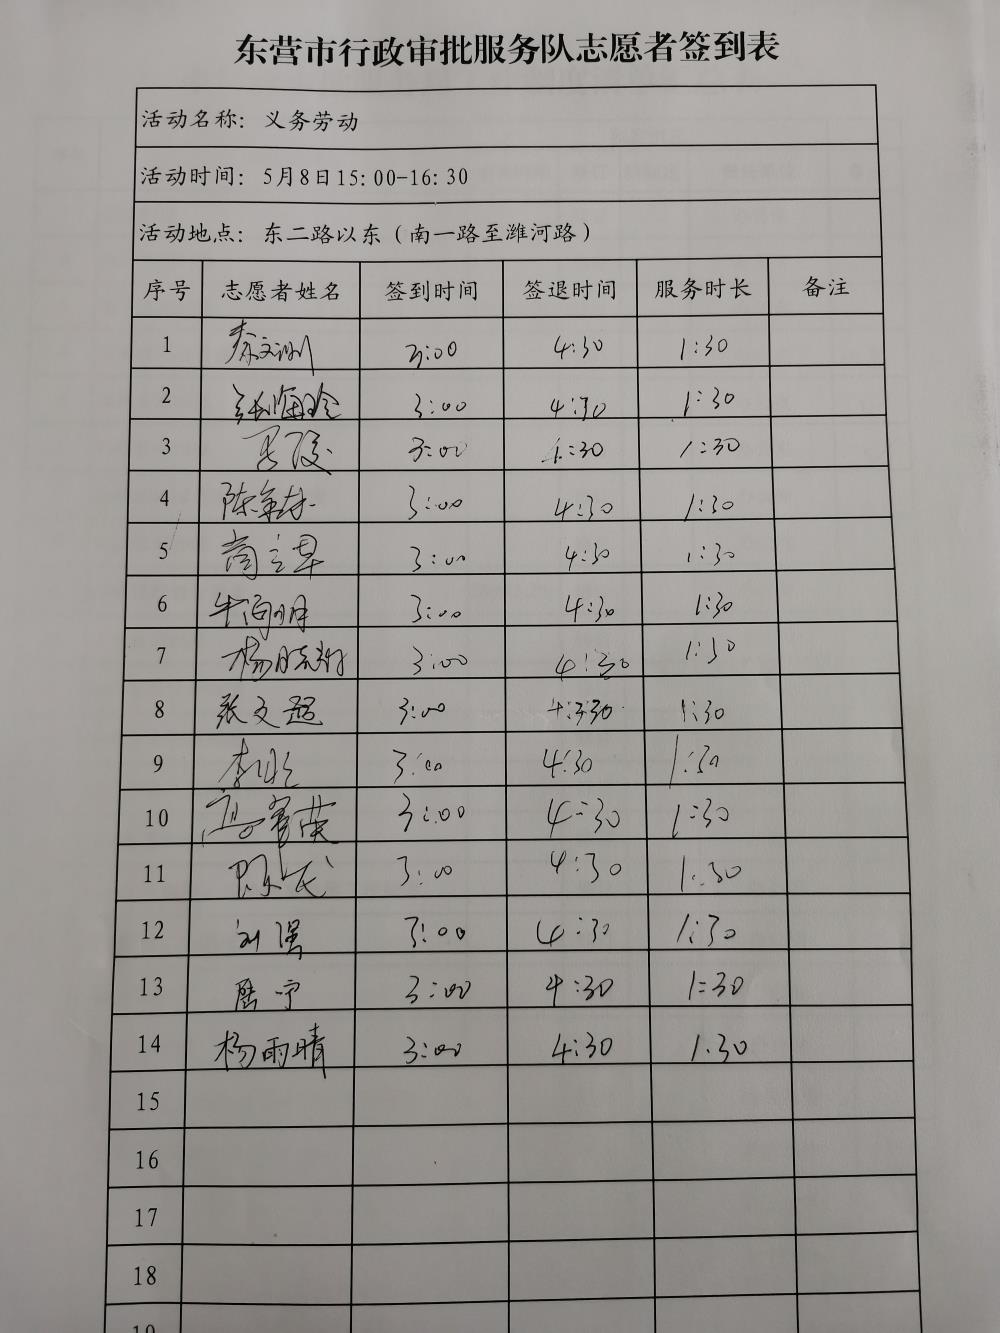 东营市行政审批服务队志愿者签到表
活动名称：义务劳动
活动时间：5月8日15：00-16：30
活动地点：东二路以东（南一路至潍河路）
序号 志愿者姓名 签到时间 签退时间 服务时长 备注
1 3:00 4:30 1:30
2 3:00 4:30 1:30
3 3:00 4:30 1:30
4 3:00 4:30 1:30
5 3:00 4:30 1:30
6 3:00 4:30 1:30
7 3:00 4:30 1:30
8 张文超 3:00 4:30 1:30
9 3:00 4:30 1:30
10 3:00 4:30 1:30
11 3:00 4:30 1:30
12 刘强 3:00 4:30 1:30
13 3:00 4:30 1:30
14 杨雨晴 3:00 4:30 1.30
15
16
17
18
19